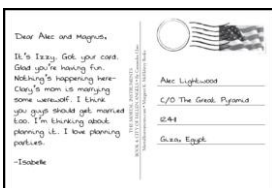 Dear Alec and Magnus,
It's Izzy. Got your card.
Glad you're having fun.
Nothing's happening here-
Clary's mom is marrying
some werewolf. I think
you guys should get married
too. I'm thinking about
planning it. I love planning
parties.
-Isabelle
THE MORTAL INSTRUMENTS
Alec Lightwood
C/O The Great Pyramid
1234
Giza, Egypt